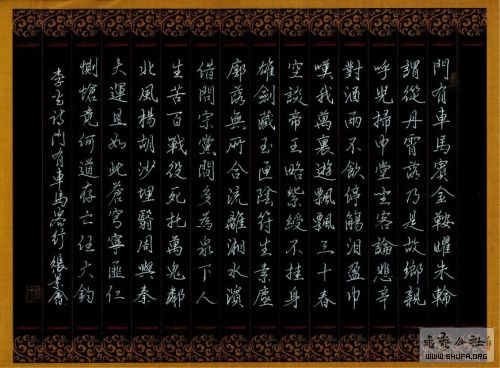 門有車馬賓金鞍曜朱輪
謂從丹霄落乃是故鄉親
呼兒掃中堂坐客論悲辛
對酒兩不飲停觴泪盈巾
嘆我萬裏遊飄飄三十春
空談帝王略紫綬不挂身
雄劍藏玉匣陰符生素塵
廓落無所合流離湘水濱
借問宗黨間多為泉下人
生苦百戰役死託萬鬼鄰
北風楊胡沙埋翳周與秦
大運且如此蒼穹寧匪仁
惻愴竟何道存亡任大鈞
李白詩門有車馬客行 張
WWW.SHUFA.ORG